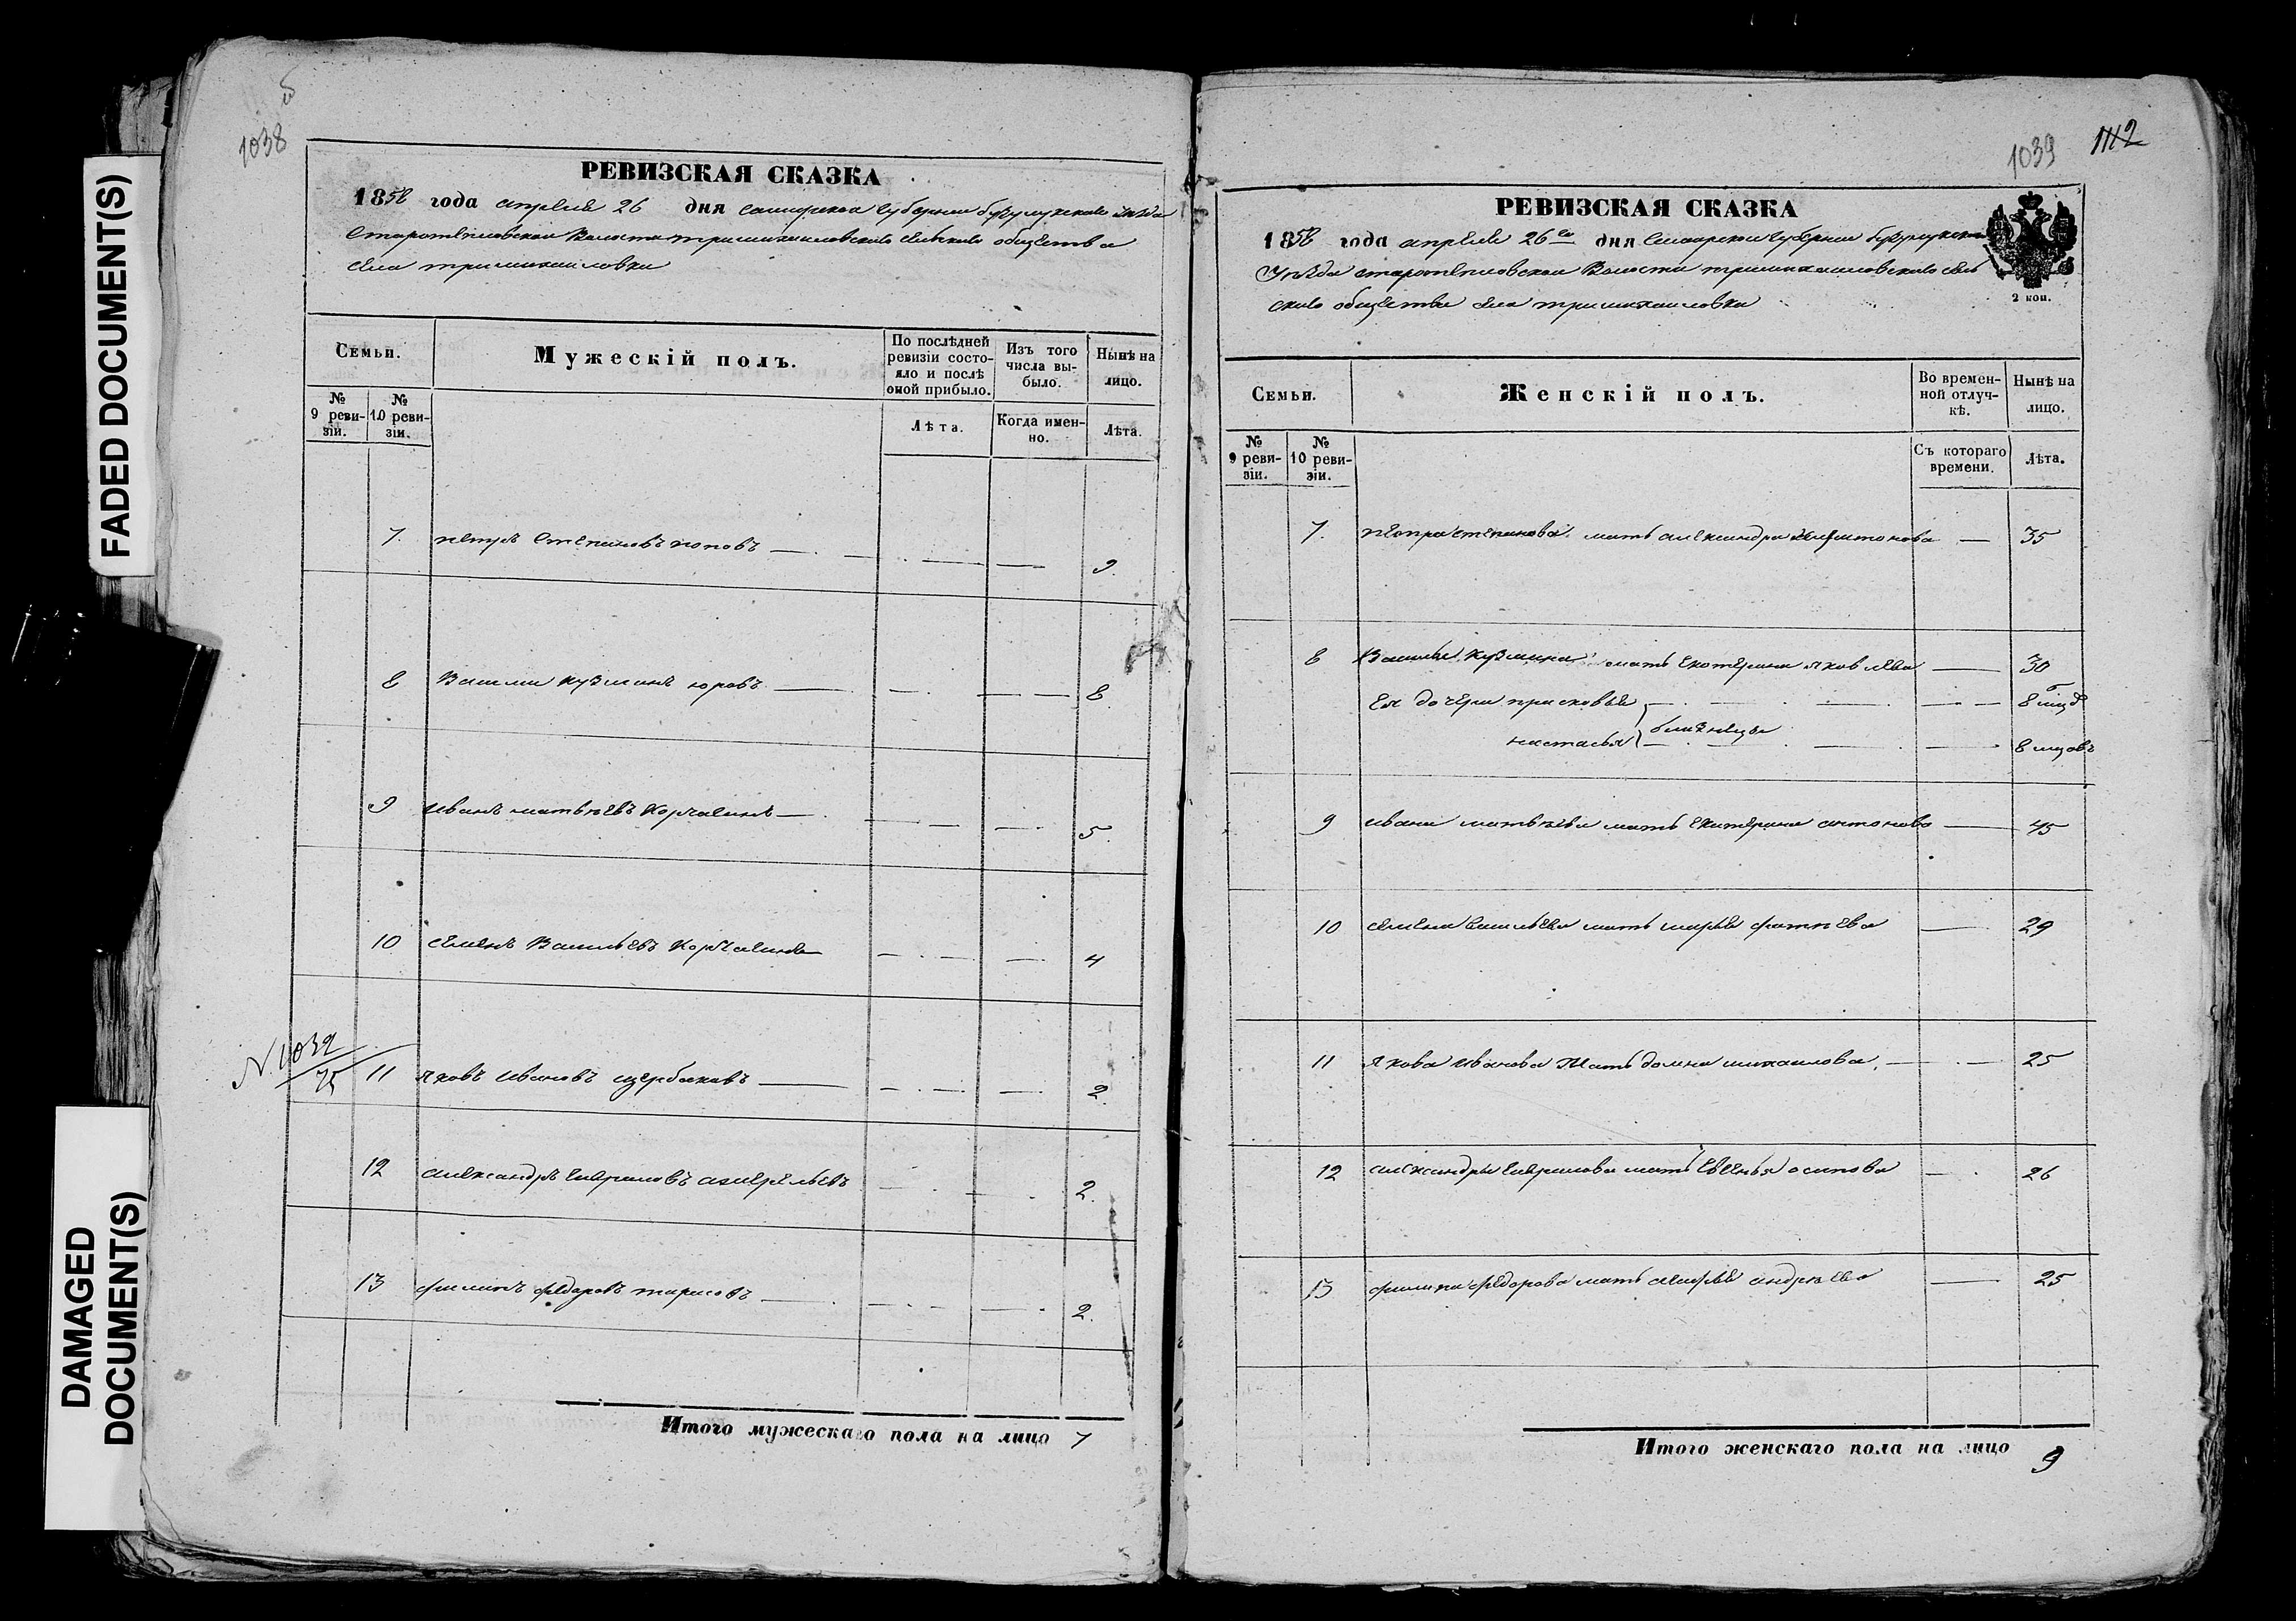 FADED DOCUMENT(S)
DAMAGED
DOCUMENT(S)
1038
РЕВИЗСКАЯ СКАЗКА
1858 года апреля 26 дня самарской губернии бузулукскаго уезда
Старотепловской Волости тримихаиловскаго сельскаго общества
села тримихаиловки
Семьи.
Мужескій полъ.
По послѣдней ревизіи состояло и послѣ оной прибыло.
Изъ того числа выбыло.
Нынѣ на лицо.
№ 9 ревизіи.
№ 10 ревизіи.
Лѣта.
Когда именно.
Лѣта.
7. петръ Степановъ поповъ 9.
8 Васили кузминъ юровъ 8
9 иванъ матвѣевъ Корчагинъ 5.
10 семенъ Васильевъ Корчагинъ 4
N 1032
75
11 яковъ ивановъ щербаковъ 2.
12 александръ гавриловъ 2.
13 филипъ федоровъ 2.
Итого мужескаго пола на лицо 7
1039 1112
РЕВИЗСКАЯ СКАЗКА
1858 года апреля 26го дня Самарской губернии бузулукскаго
Уѣзда старотепловской Волости тримихаиловскаго сель
скаго общества села тримихаиловки
2 коп.
Семьи.
Женскій полъ.
Во временной отлучкѣ.
Нынѣ на лицо.
№ 9 ревизіи.
№ 10 ревизіи.
Съ котораго времени.
Лѣта.
7. петра степанова мать александра 35
8 Василья кузмина мать екатерина яковлева 30
ея дочери прасковья 8
настасья близнецы 8 мцовъ
9 ивана матвѣева мать екатерина антонова 45
10 семена васильева мать марья 29
11 якова иванова мать домна михаилова 25
12 александры гаврилова мать евгенья осипова 26
13 филипа федорова мать андрѣева 25
Итого женскаго пола на лицо 9